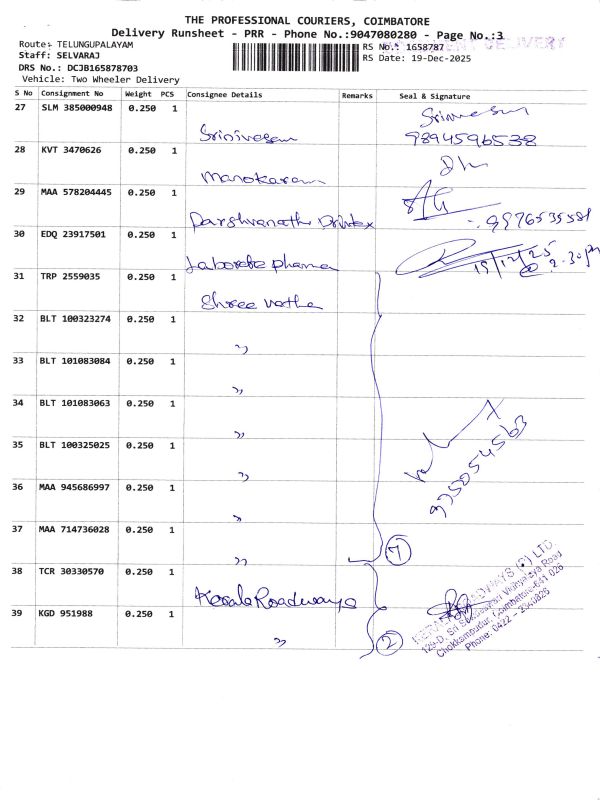 THE PROFESSIONAL COURIERS, COIMBATORE
Delivery Runsheet - PRR - Phone No.:9047080280 - Page No.:3
Route: TELUNGUPALAYAM
RS No.: 1658787
DELIVERY
Staff: SELVARAJ
RS Date: 19-Dec-2025
DRS No.: DCJB165878703
Vehicle: Two Wheeler Delivery
S No Consignment No Weight PCS Consignee Details Remarks Seal & Signature
27 SLM 385000948 0.250 1 Srinivasan Srinivasan
9894596538
28 KVT 3470626 0.250 1 Manokaram
29 MAA 578204445 0.250 1 Parshvanath Printex
30 EDQ 23917501 0.250 1 Laborate pharma 19/12/25
@ 2.30 pm
31 TRP 2559035 0.250 1 Shree vatha
32 BLT 100323274 0.250 1 "
33 BLT 101083084 0.250 1 "
34 BLT 101083063 0.250 1 "
35 BLT 100325025 0.250 1 "
9750054563
36 MAA 945686997 0.250 1 "
37 MAA 714736028 0.250 1 "
7
38 TCR 30330570 0.250 1 Kerala Roadways
39 KGD 951988 0.250 1 "
2
KERALA ROADWAYS (P) LTD
129-D, Sri
Road
Chokkampudur, Coimbatore-641 026
Phone: 0422 - 2340825